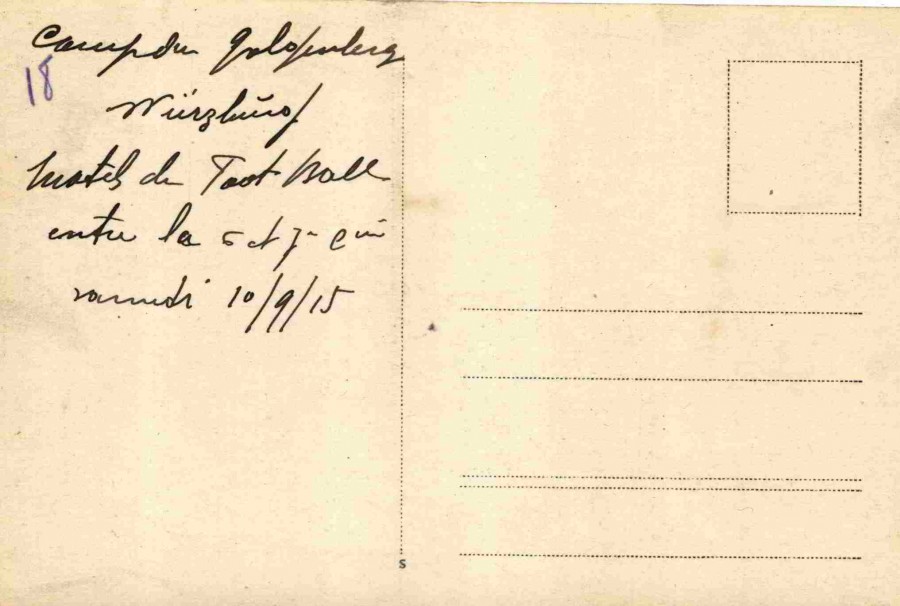 Camp du Galgenberg
18
Würzburg
Match de Foot Ball
entre la 6 et 7e Cie
samedi 10/9/15
S